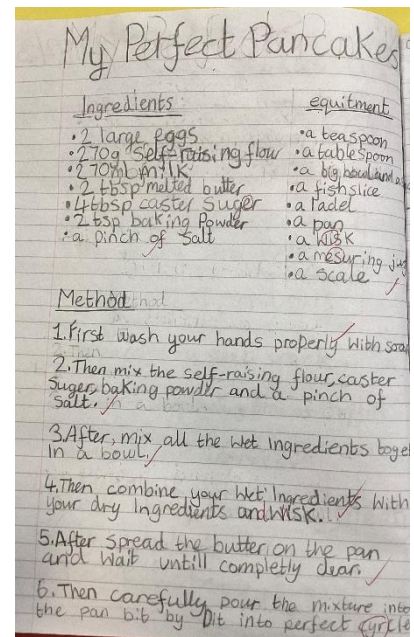 My Perfect Pancakes
Ingredients:
• 2 large eggs
• 270g self-raising flour
• 270ml milk
• 2 tbsp melted butter
• 4tbsp caster Suger
• 2 tsp baking Powder
• a pinch of salt
equitment
• a teaspoon
• a tablespoon
• a big bowl and a
• a fishslice
• a ladel
• a pan
• a wisk
• a mesuring
• a scale
Method
1. First wash your hands properly with soap
2. Then mix the self-raising flour, caster
Suger, baking powder and a pinch of
salt.
3. After, mix all the wet Ingredients toge
In a bowl.
4. Then, combine your wet Ingredients with
your dry Ingredients and wisk.
5. After spread the butter on the pan
and wait untill completly clear.
6. Then carefully pour the mixture into
the pan bit by bit into perfect cyrcle